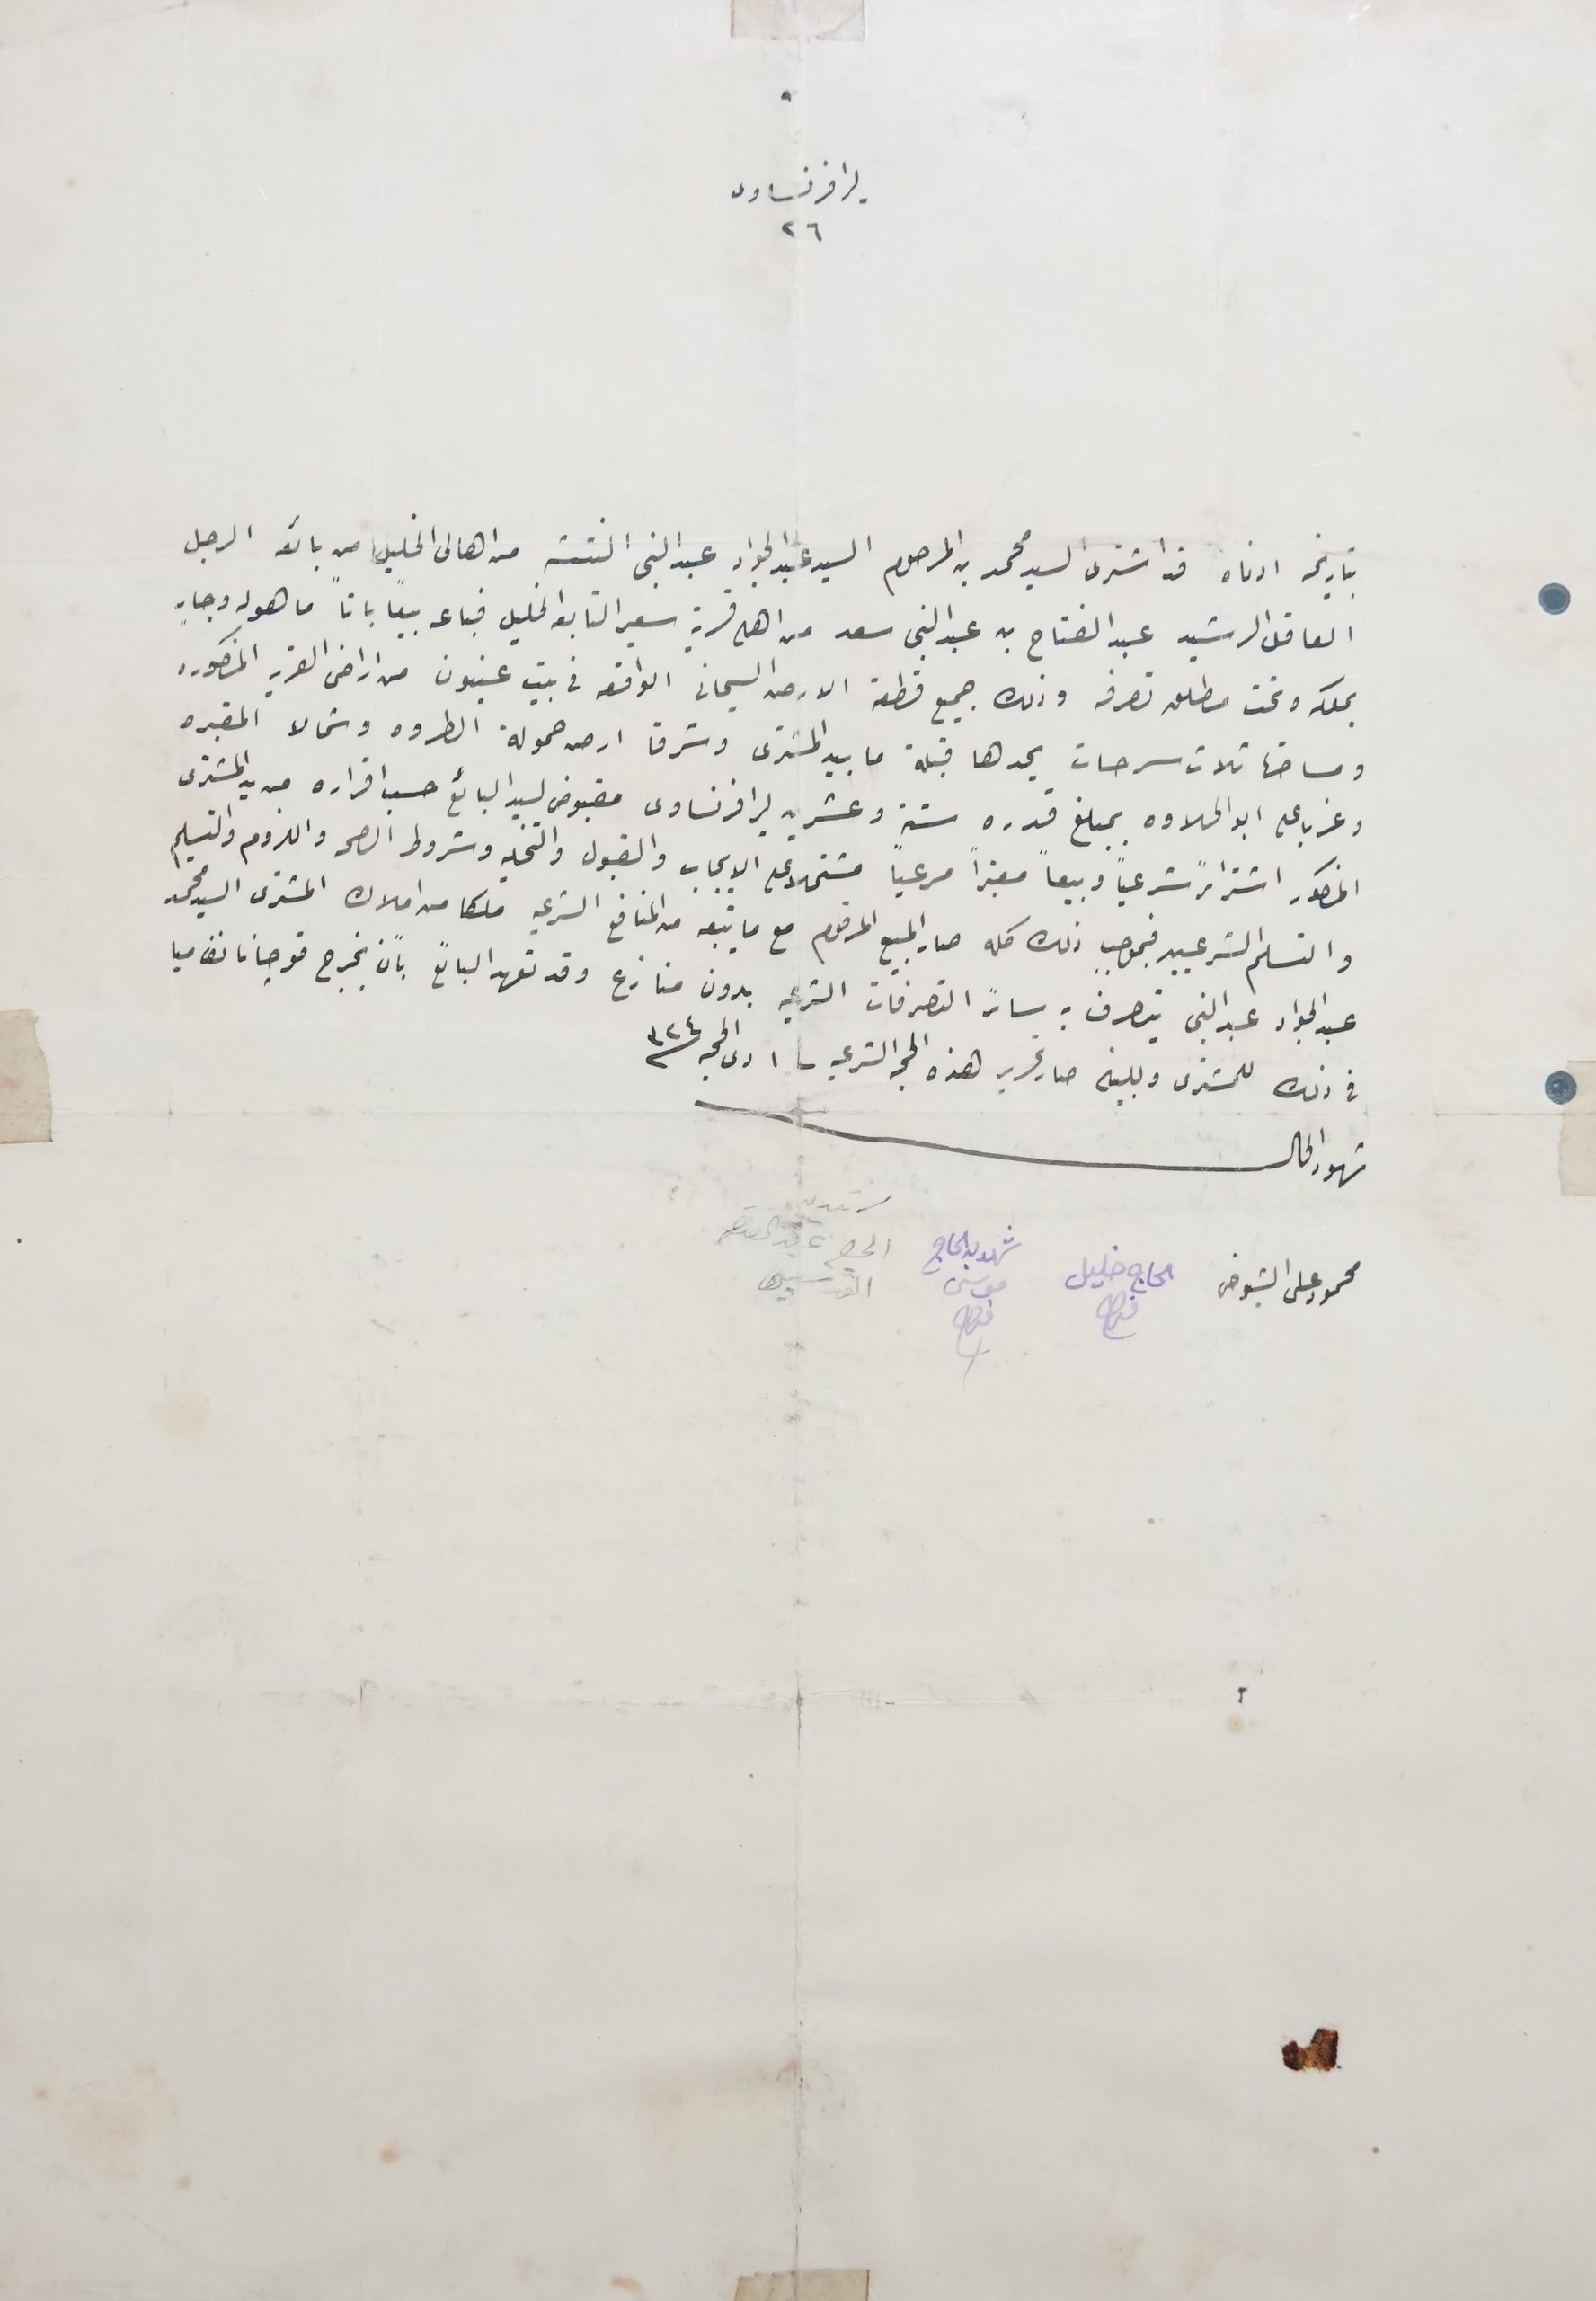 ليرا فرنساوى
٢٦
بتاريخه ادناه قد اشترى السيد محمد بن المرحوم السيد عبدالجواد عبدالنبى النتشه من اهالى الخليل من بائعه الرجل
العاقل الرشيد عبدالفتاح بن عبدالنبى سعد من اهل قرية سعير التابعه الخليل فباعه بيعاً باتاً ما هو له وجارٍ
بملكه وتحت مطلق تصرفه وذلك جميع قطعة الارض السيحانى الواقعه فى بيت عينون من اراضى القريه المذكوره
ومساحتها ثلاث سرحات يحدها قبلة ما بيد المشترى وشرقا ارض حمولة الطروه وشمالا المقبره
وغربا على ابو الحلاوه بمبلغ قدره ستة وعشرين ليرا فرنساوى مقبوض ليد البائع حسب اقراره من يد المشترى
المذكور اشتراءً شرعياً وبيعاً معتبراً مرعياً مشتملا على الايجاب والقبول والتخليه وشروط الصحه واللزوم والتسليم
والتسلم الشرعيين فبموجب ذلك كله صار المبيع المرقوم مع ما يتبعه من المنافع الشرعيه ملكا من املاك المشترى السيد محمد
عبدالجواد عبدالنبى يتصرف به سائر التصرفات الشرعيه بدون منازع وقد تعهد البائع بأن يخرج قوجانا نظاميا
فى ذلك للمشترى وللبيان صار تحرير هذه الحجه الشرعيه ١ ذى الحجه ٣٢٤
شهود الحال
محمود على الشيوخى
الحاج خليل
شهد بن الحاج
موسى
الحاج عبد